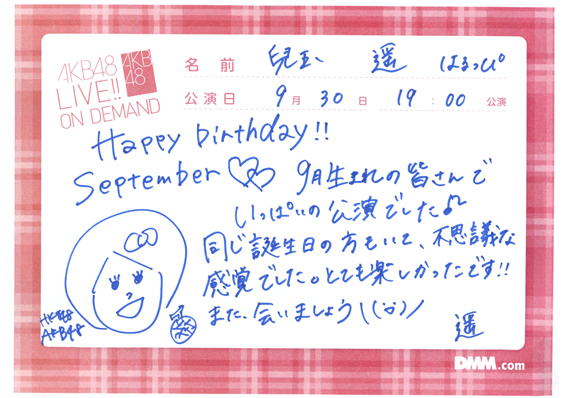 AKB48
LIVE!!
ON DEMAND
AKB
48
名前 兒玉 遥 はるっぴ
公演日 9月30日 19:00 公演
Happy birthday!!
September 9月生まれの皆さんで
いっぱいの公演でした♪
同じ誕生日の方もいて、不思議な
感覚でした。とても楽しかったです!!
また、会いましょう\(´◇`)/
遥
HKT48
AKB48
DMM.com